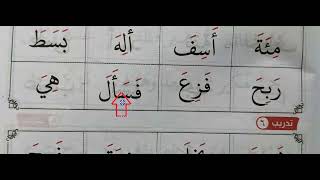 مِئَةَ أَسِفَ أَلَهَ بَسَطَ
رَبَحَ فَزِعَ فَسَأَلَ هِيَ
تدريب ٦